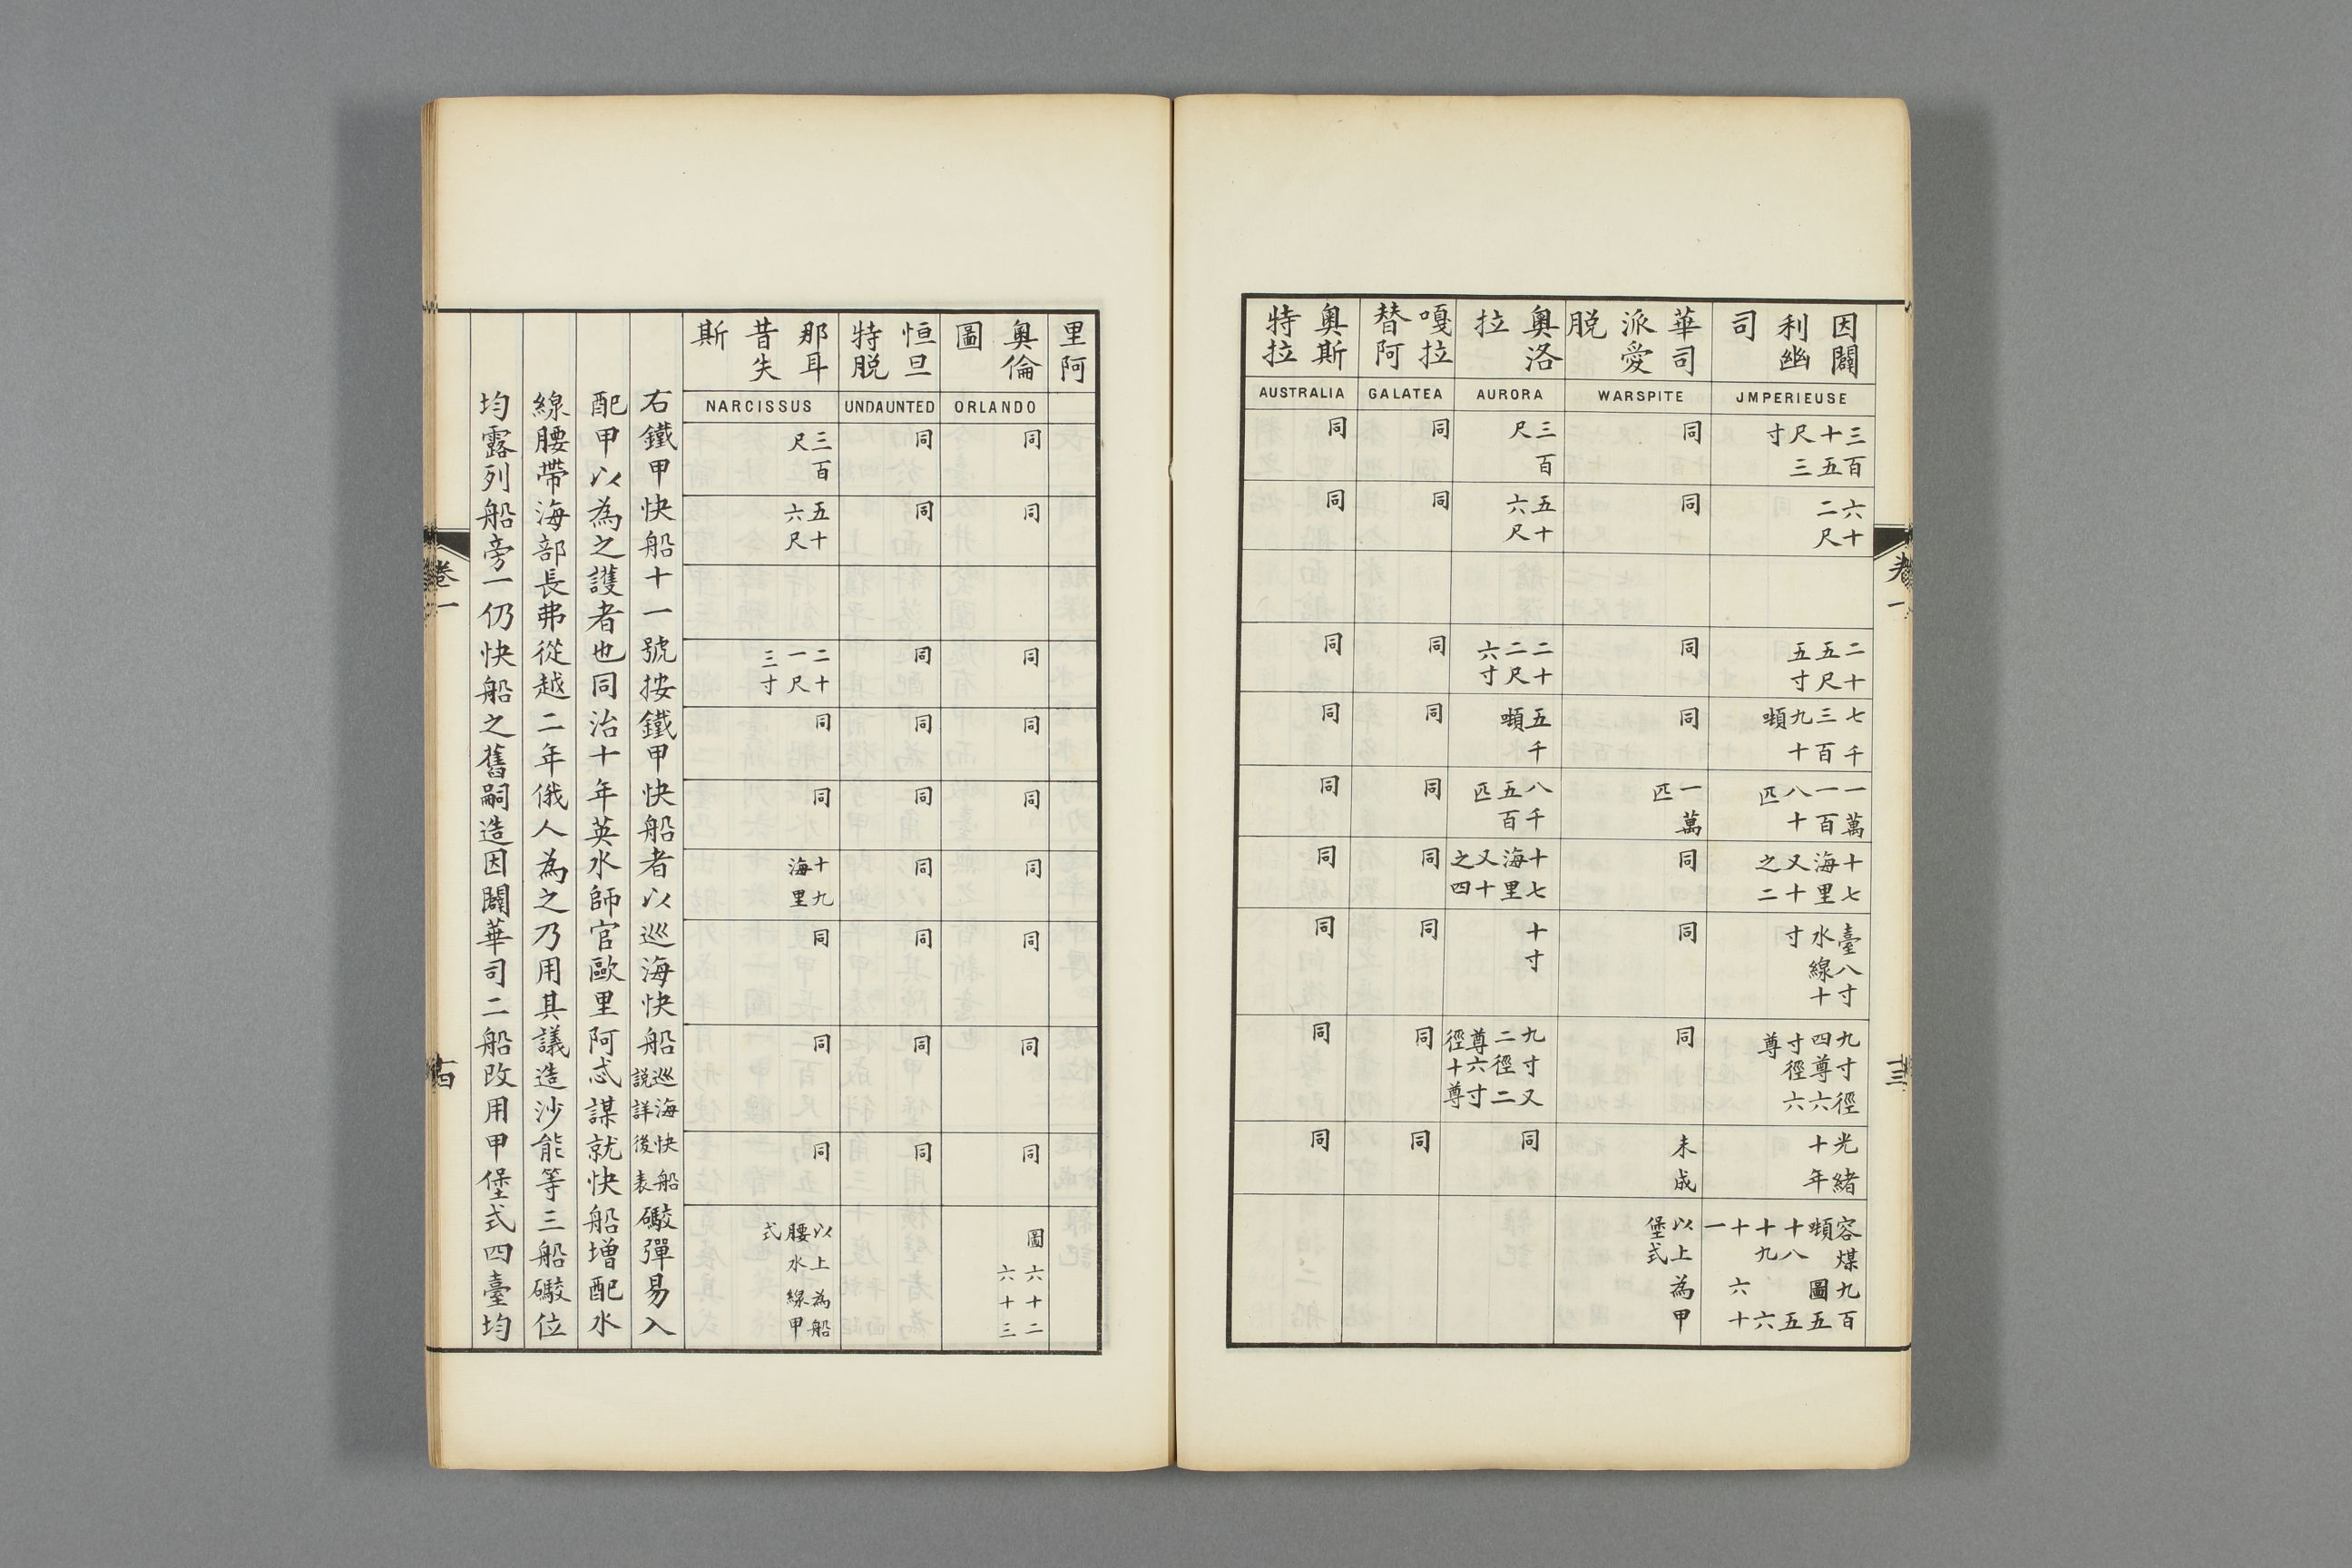 因闢
利幽
司
JMPERIEUSE
三百
十五
尺三
寸
六十
二尺
二十
五尺
五寸
七千
三百
九十
噸
一萬
一百
八十
匹
十七
海里
又十
之二
臺八寸
水線十
寸
九寸徑
四尊六
寸徑六
尊
光緒
十年
容煤九百
噸 圖五
十八 五
十九 六
十六十
一
華司
派愛
脫
WARSPITE
同
同
同
同
一萬
匹
同
同
同
未成
以上為甲
堡式
奧洛
拉
AURORA
三百
尺
五十
六尺
二十
二尺
六寸
五千
噸
八千
五百
匹
十七
海里
又十
之四
十寸
九寸又
二徑二
尊六寸
徑十尊
同
嘎拉
替阿
GALATEA
同
同
同
同
同
同
同
同
同
奧斯
特拉
AUSTRALIA
同
同
同
同
同
同
同
同
同
卷一
十三
里阿
奧倫
圖
ORLANDO
同
同
同
同
同
同
同
同
同
圖六十二
六十三
恒旦
特脫
UNDAUNTED
同
同
同
同
同
同
同
同
同
那耳
昔失
斯
NARCISSUS
三百
尺
五十
六尺
二十
一尺
三寸
同
同
十九
海里
同
同
同
以上為船
腰水線甲
式
右鐵甲快船十一號按鐵甲快船者以巡海快船巡海快船說詳後表礮彈易入
配甲以為之護者也同治十年英水師官歐里阿忒謀就快船增配水
線腰帶海部長弗從越二年俄人為之乃用其議造沙能等三船礮位
均露列船旁一仍快船之舊嗣造因闢華司二船改用甲堡式四臺均
卷一
十四